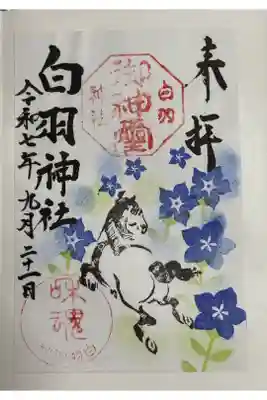 奉拝
白羽
御神璽
神社
白羽神社
令和七年九月二十一日